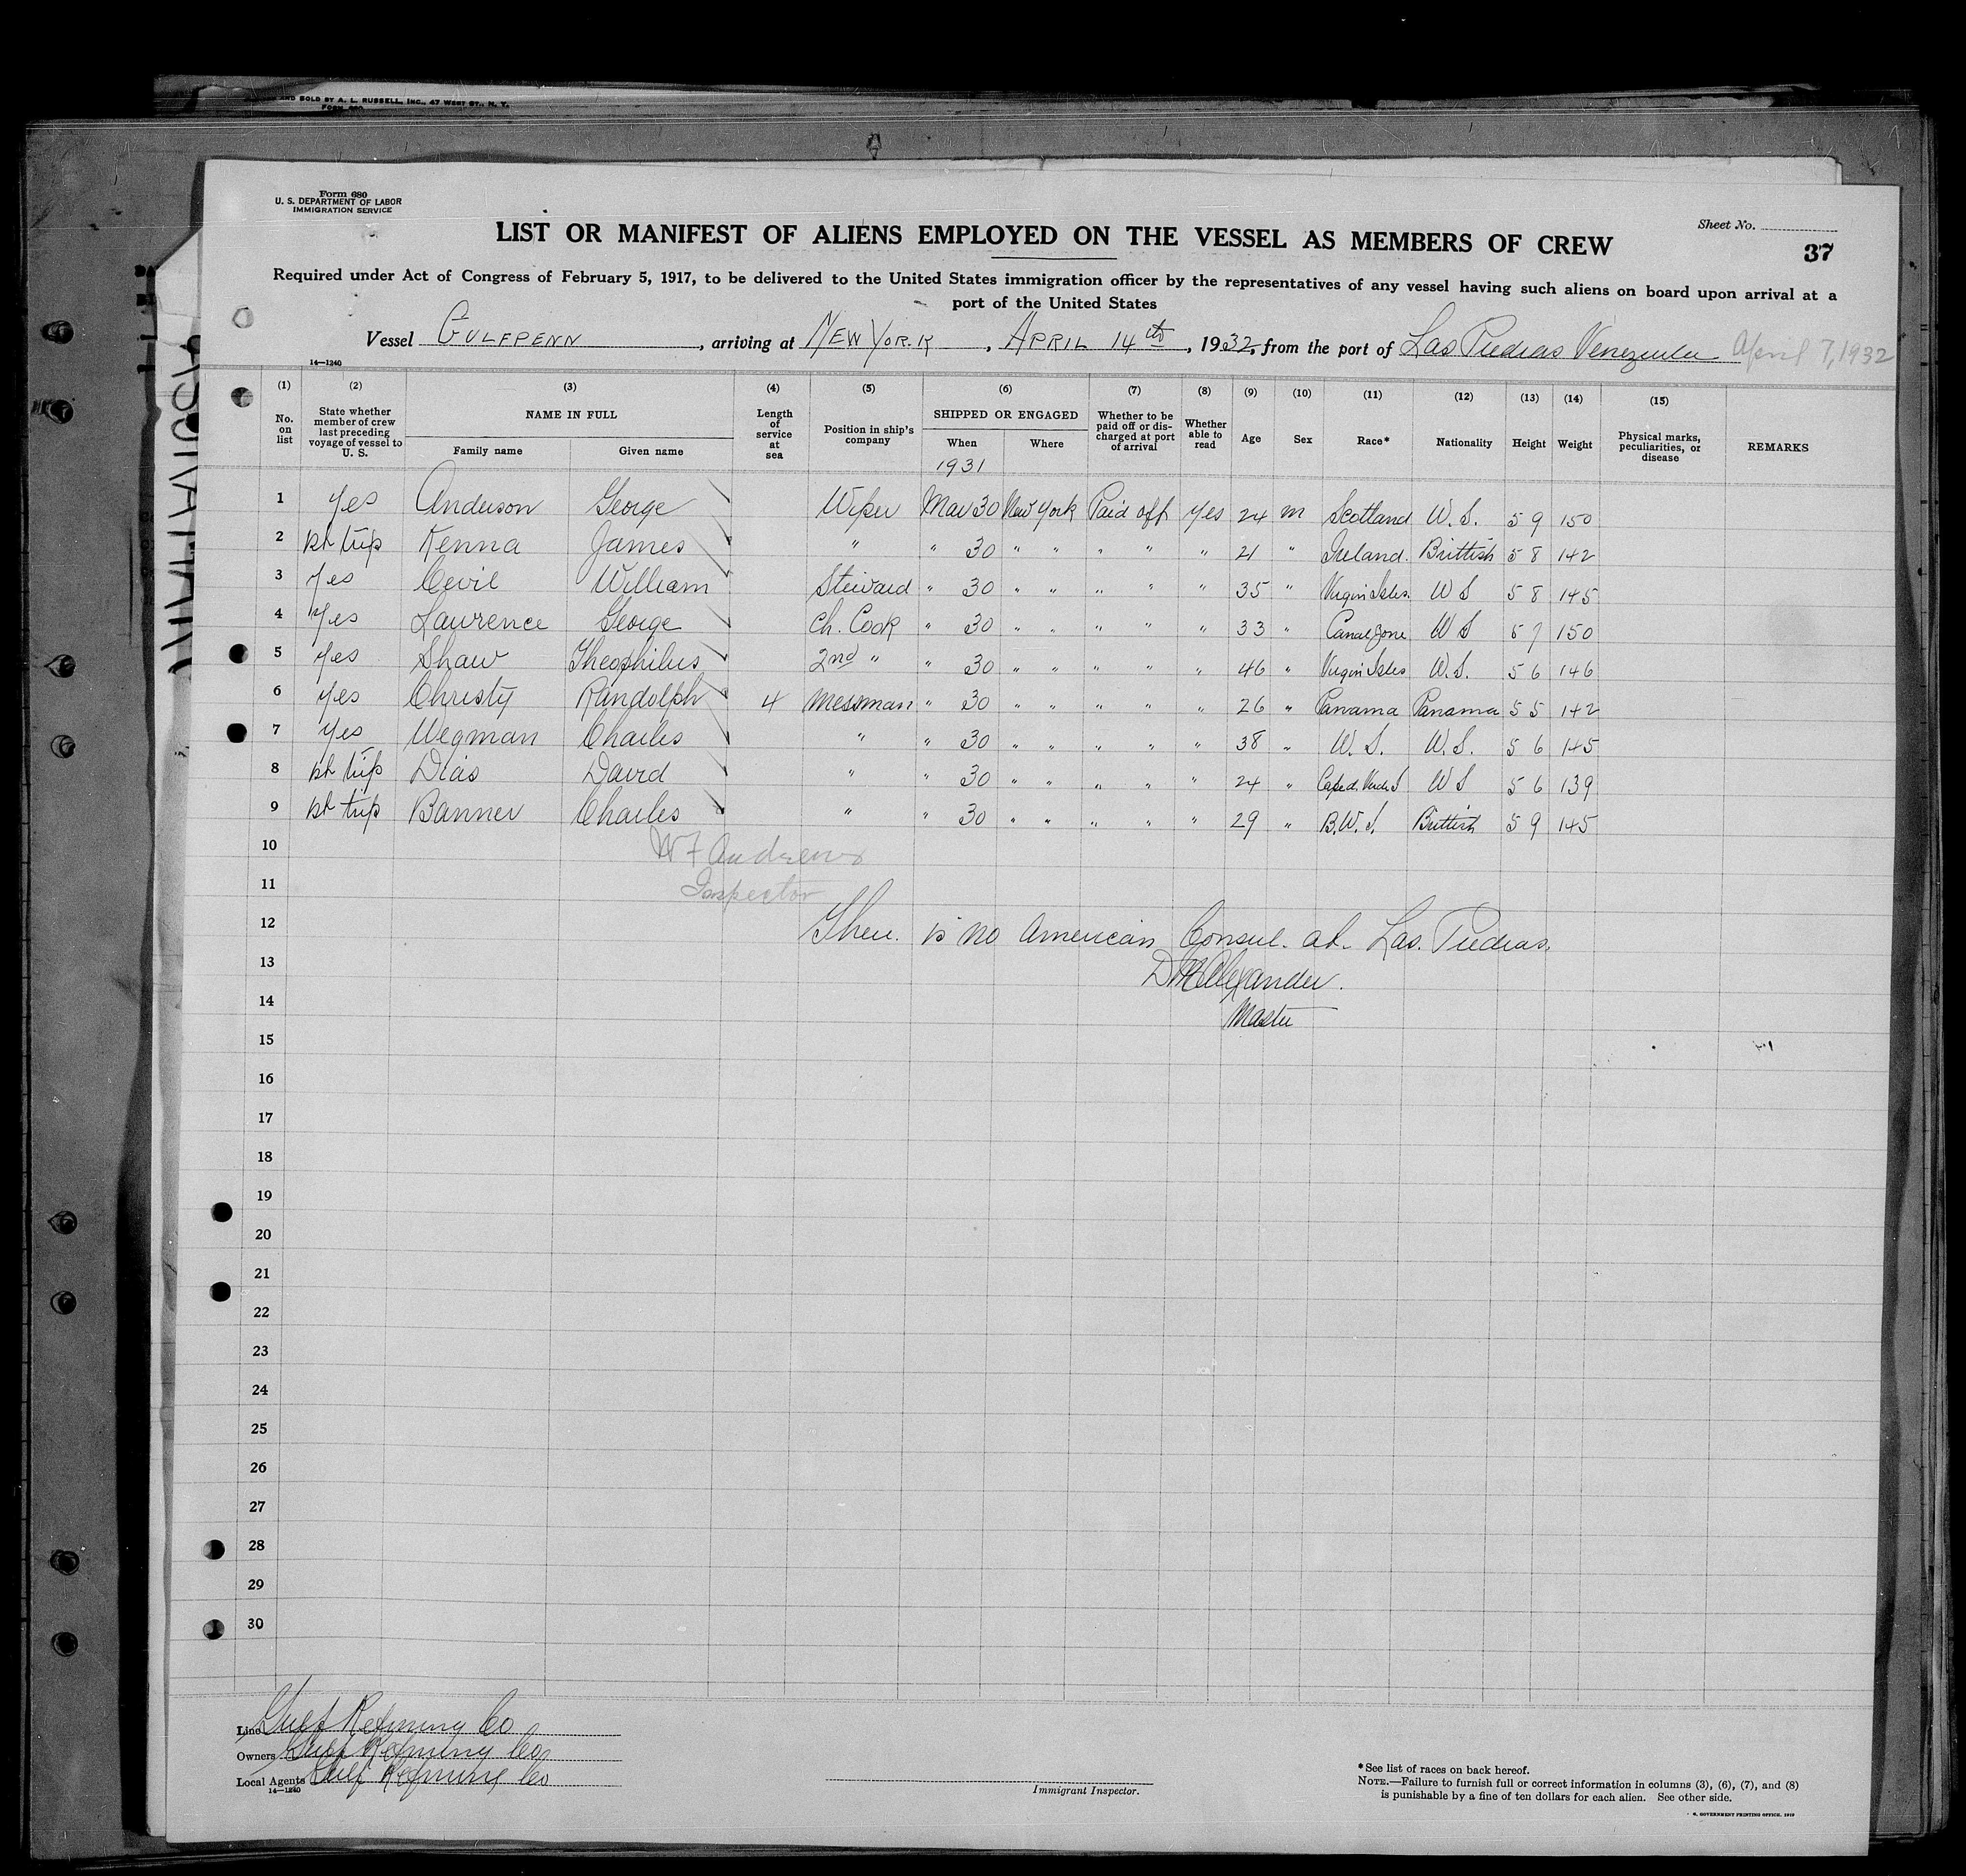 AND SOLD BY A. L. RUSSELL, INC., 47 WEST ST., N. Y.
Form 680
Form 680
U. S. DEPARTMENT OF LABOR
IMMIGRATION SERVICE
Sheet No.
LIST OR MANIFEST OF ALIENS EMPLOYED ON THE VESSEL AS MEMBERS OF CREW
37
Required under Act of Congress of February 5, 1917, to be delivered to the United States immigration officer by the representatives of any vessel having such aliens on board upon arrival at a
port of the United States
Vessel GULFPENN, arriving at NEW YORK, APRIL 14th, 1932, from the port of Las Piedras Venezuela April 7, 1932
14—1240
(1) (2) (3) (4) (5) (6) (7) (8) (9) (10) (11) (12) (13) (14) (15)
No. on list State whether member of crew last preceding voyage of vessel to U. S. NAME IN FULL Family name Given name Length of service at sea Position in ship's company SHIPPED OR ENGAGED When Where Whether to be paid off or discharged at port of arrival Whether able to read Age Sex Race* Nationality Height Weight Physical marks, peculiarities, or disease REMARKS
1931
1 Yes Anderson George Wiper Mar 30 New York Paid off Yes 24 m Scotland U. S. 5 9 150
2 1st trip Kenna James " " 30 " " " " " 21 " Ireland. Brittish 5 8 142
3 Yes Cevil William Steward " 30 " " " " " 35 " Virgin Isles. U S 5 8 145
4 Yes Lawrence George Ch. Cook " 30 " " " " " 33 " Canal Zone U S 5 7 150
5 Yes Shaw Theophilus 2nd " " 30 " " " " " 46 " Virgin Isles U. S. 5 6 146
6 Yes Christy Randolph 4 Messman " 30 " " " " " 26 " Panama Panama 5 5 142
7 Yes Wegman Charles " " 30 " " " " " 38 " U. S. U. S. 5 6 145
8 1st trip Dias David " " 30 " " " " " 24 " Cape d. Verde I U S 5 6 139
9 1st trip Banner Charles " " 30 " " " " " 29 " B. W. I. Brittish 5 9 145
10 W F Andrews
11 Inspector
12 There is no American Consul at Las. Piedras.
13 D M Alexander.
14 Master
15
16
17
18
19
20
21
22
23
24
25
26
27
28
29
30
Line Gulf Refining Co
Owners Gulf Refining Co
Local Agents Gulf Refining Co
14—1240
Immigrant Inspector.
*See list of races on back hereof.
NOTE.—Failure to furnish full or correct information in columns (3), (6), (7), and (8)
is punishable by a fine of ten dollars for each alien. See other side.
GOVERNMENT PRINTING OFFICE. 1919